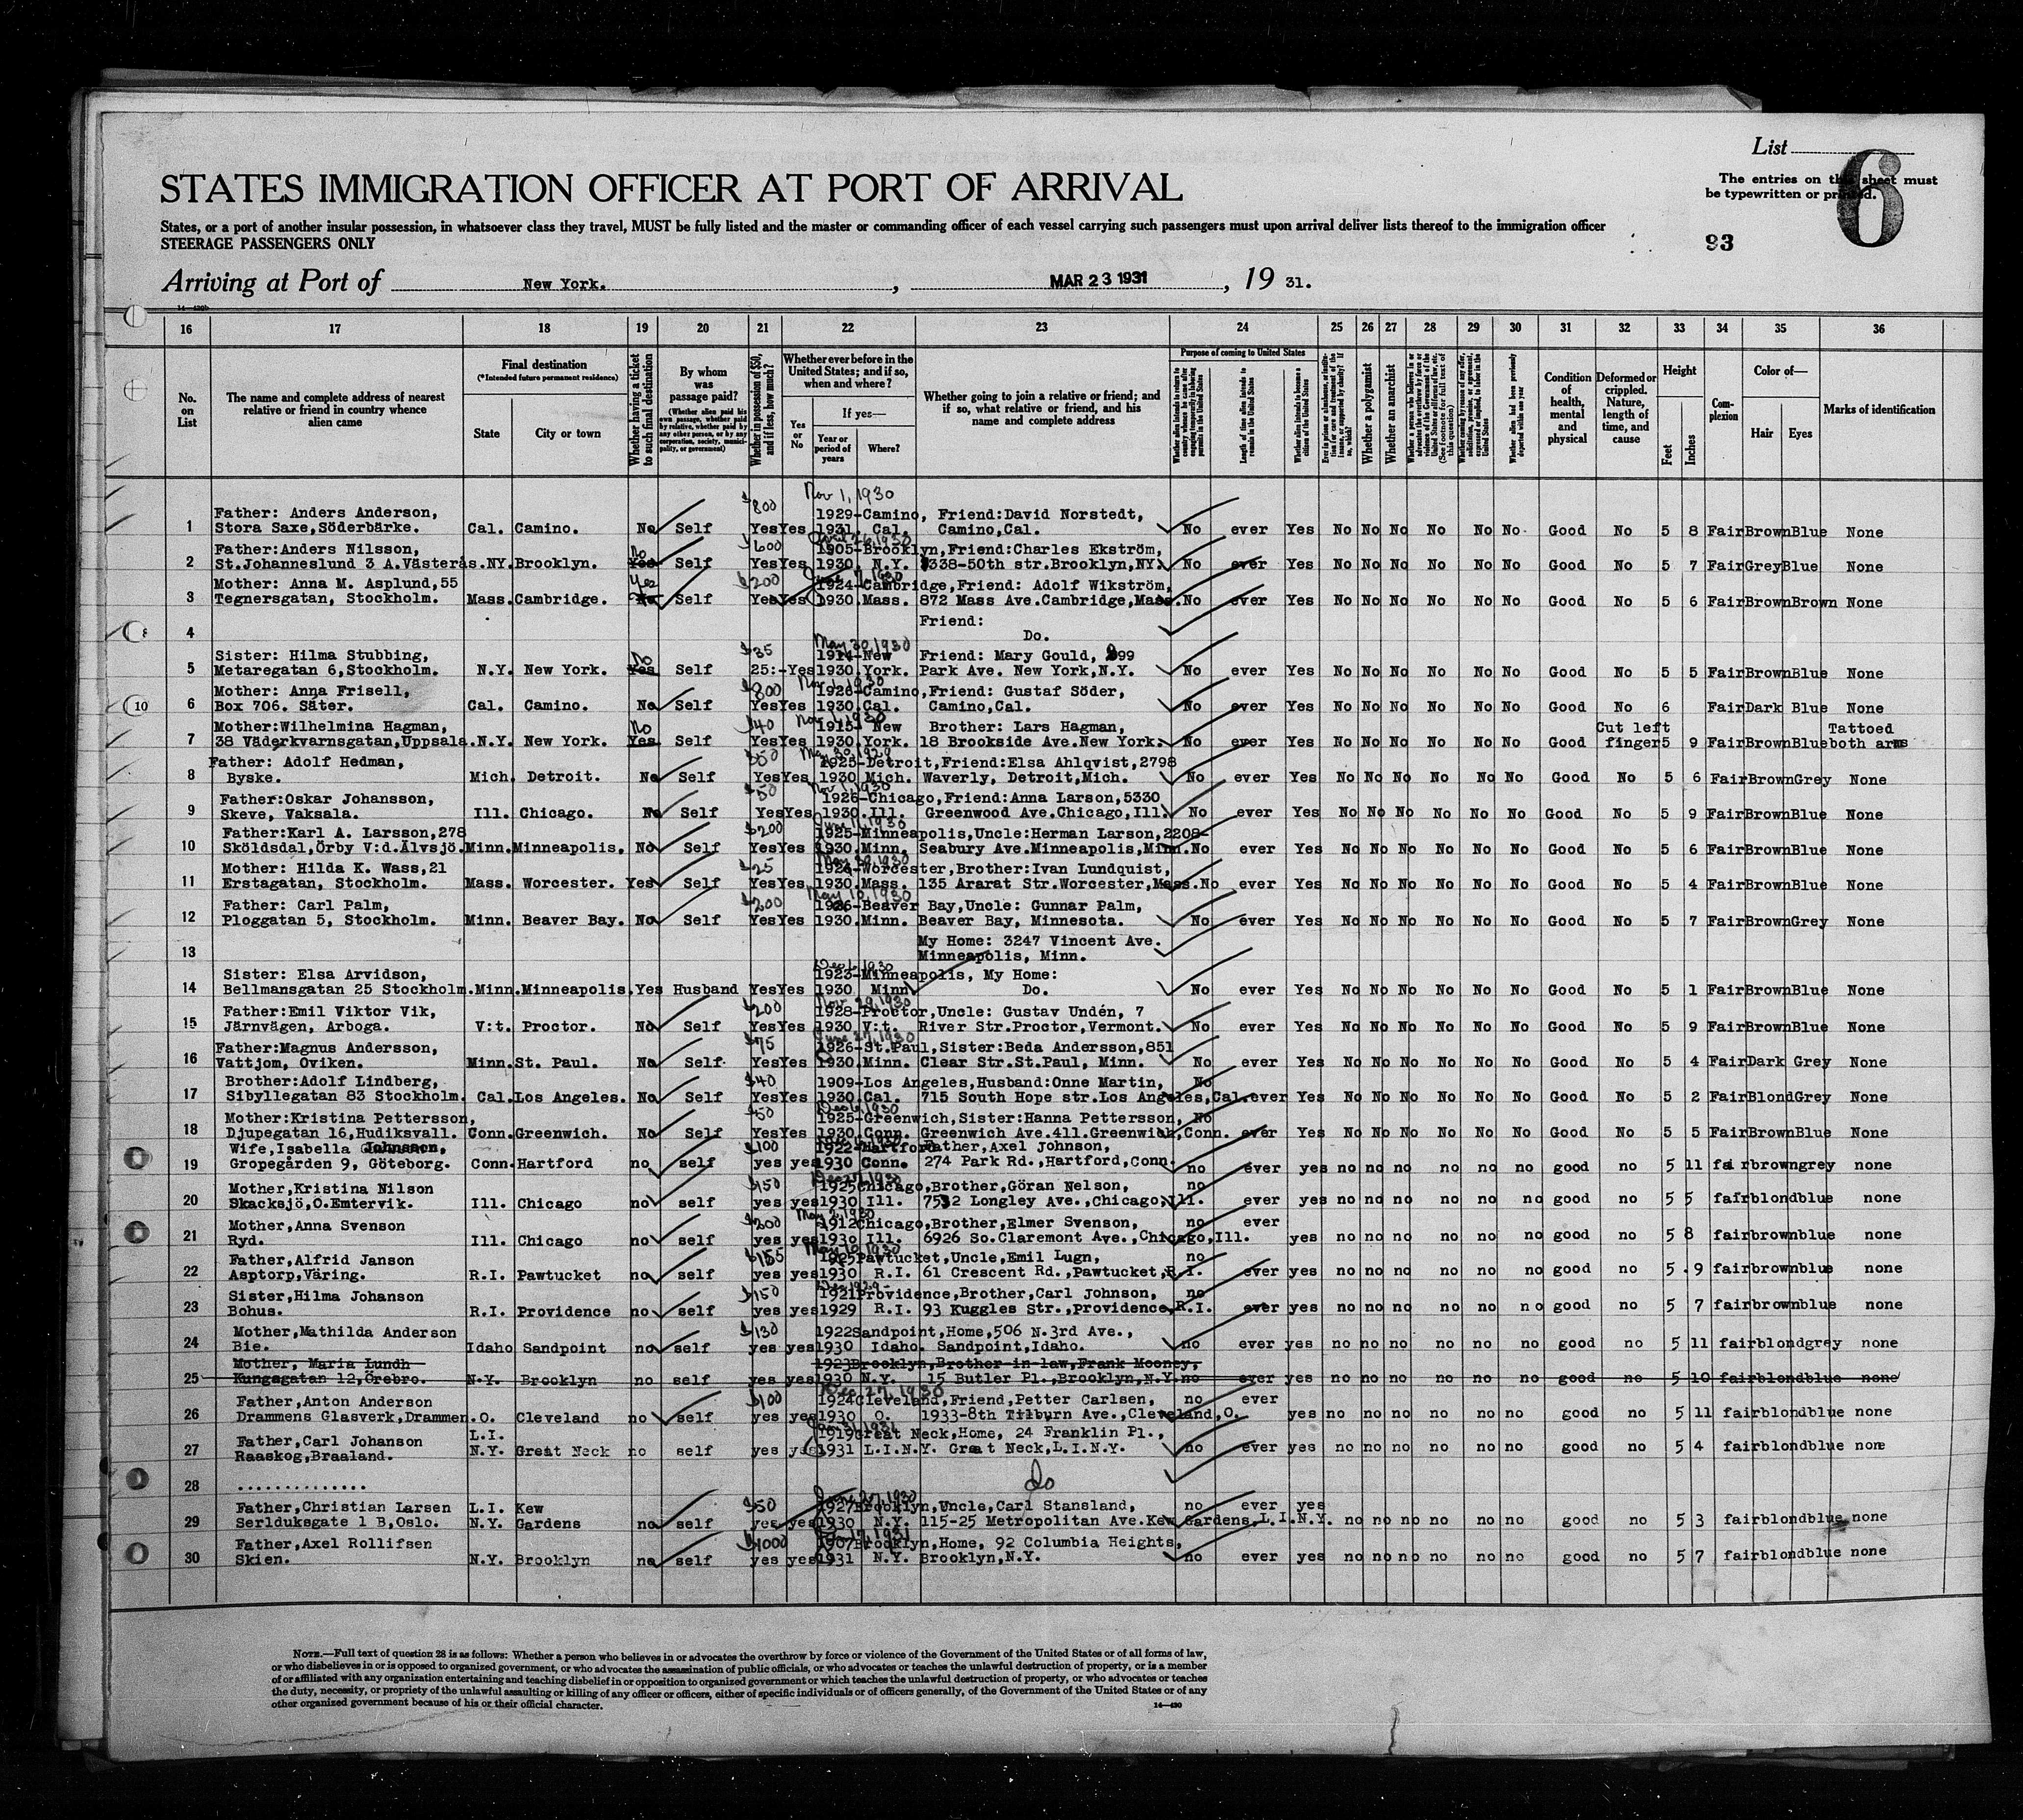 List
6
The entries on this sheet must
be typewritten or printed.
STATES IMMIGRATION OFFICER AT PORT OF ARRIVAL
States, or a port of another insular possession, in whatsoever class they travel, MUST be fully listed and the master or commanding officer of each vessel carrying such passengers must upon arrival deliver lists thereof to the immigration officer
STEERAGE PASSENGERS ONLY
93
Arriving at Port of New York. , MAR 23 1931 , 19 31.
16 17 18 19 20 21 22 23 24 25 26 27 28 29 30 31 32 33 34 35 36
No. on List
The name and complete address of nearest relative or friend in country whence alien came
Final destination
(*Intended future permanent residence)
State
City or town
Whether having a ticket to such final destination
By whom was passage paid?
(Whether alien paid his own passage, whether paid by relative, whether paid by any other person, or by any corporation, society, municipality, or government)
Whether in possession of $50, and if less, how much?
Whether ever before in the United States; and if so, when and where?
Yes or No
If yes—
Year or period of years
Where?
Whether going to join a relative or friend; and if so, what relative or friend, and his name and complete address
Purpose of coming to United States
Length of time alien intends to remain in the United States
Whether alien intends to become a citizen of the United States
Whether a polygamist
Whether an anarchist
Condition of health, mental and physical
Deformed or crippled. Nature, length of time, and cause
Height
Feet
Inches
Complexion
Color of—
Hair
Eyes
Marks of identification
Nov 1, 1930
Father: Anders Anderson, $800 1929-Camino, Friend:David Norstedt,
1 Stora Saxe,Söderbärke. Cal. Camino. No Self Yes Yes 1931. Cal. Camino,Cal. No ever Yes No No No No No No Good No 5 8 Fair Brown Blue None
Father:Anders Nilsson, No $600 1905-Brooklyn,Friend:Charles Ekström,
2 St.Johanneslund 3 A.Västerås.NY.Brooklyn. Yes Self Yes Yes 1930. N.Y. 338-50th str.Brooklyn,NY. No ever Yes No No No No No No Good No 5 7 Fair Grey Blue None
Mother: Anna M. Asplund,55 Yes $200 1924-Cambridge,Friend: Adolf Wikström,
3 Tegnersgatan, Stockholm. Mass.Cambridge. No Self Yes Yes 1930.Mass. 872 Mass Ave.Cambridge,Mass.No ever Yes No No No No No No Good No 5 6 Fair Brown Brown None
Friend:
4 Do.
May 30, 1930
Sister: Hilma Stubbing, No $35 1914-New Friend: Mary Gould, 899
5 Metaregatan 6,Stockholm. N.Y. New York. Yes Self 25:-Yes 1930.York. Park Ave. New York,N.Y. No ever Yes No No No No No No Good No 5 5 Fair Brown Blue None
Nov 1, 1930
Mother: Anna Frisell, $800 1926-Camino,Friend: Gustaf Söder,
6 Box 706. Säter. Cal. Camino. No Self Yes Yes 1930.Cal. Camino,Cal. No ever Yes No No No No No No Good No 6 Fair Dark Blue None
Nov 1, 1930
Mother:Wilhelmina Hagman, No $40 1915- New Brother: Lars Hagman, Cut left Tattoed
7 38 Väderkvarnsgatan,Uppsala.N.Y. New York. Yes Self Yes Yes 1930.York. 18 Brookside Ave.New York. No ever Yes No No No No No No Good finger 5 9 Fair Brown Blue both arms
Father: Adolf Hedman, $50 1925-Detroit,Friend:Elsa Ahlqvist,2798
8 Byske. Mich. Detroit. No Self Yes Yes 1930 Mich. Waverly, Detroit,Mich. No ever Yes No No No No No No Good No 5 6 Fair Brown Grey None
Nov 1, 1930
Father:Oskar Johansson, $50 1926-Chicago,Friend:Anna Larson,5330
9 Skeve, Vaksala. Ill. Chicago. No Self Yes Yes 1930.Ill. Greenwood Ave.Chicago,Ill. No ever Yes No No No No No No Good No 5 9 Fair Brown Blue None
June 11, 1930
Father:Karl A. Larsson,278 $200 1925-Minneapolis,Uncle:Herman Larson,2208-
10 Sköldsdal,Örby V:d.Älvsjö.Minn.Minneapolis. No Self Yes Yes 1930.Minn. Seabury Ave.Minneapolis,Minn.No ever Yes No No No No No No Good No 5 6 Fair Brown Blue None
May 30, 1930
Mother: Hilda K. Wass,21 $25 1926-Worcester,Brother:Ivan Lundquist,
11 Erstagatan, Stockholm. Mass. Worcester. Yes Self Yes Yes 1930.Mass. 135 Ararat Str.Worcester,Mass.No ever Yes No No No No No No Good No 5 4 Fair Brown Blue None
May 10, 1930
Father: Carl Palm, $200 1926-Beaver Bay,Uncle: Gunnar Palm,
12 Ploggatan 5, Stockholm. Minn. Beaver Bay. No Self Yes Yes 1930.Minn. Beaver Bay, Minnesota. No ever Yes No No No No No No Good No 5 7 Fair Brown Grey None
My Home: 3247 Vincent Ave.
13 Minneapolis, Minn.
Dec 6, 1930
Sister: Elsa Arvidson, 1923-Minneapolis, My Home:
14 Bellmansgatan 25 Stockholm.Minn.Minneapolis.Yes Husband Yes Yes 1930 Minn. Do. No ever Yes No No No No No No Good No 5 1 Fair Brown Blue None
Nov. 29, 1930
Father:Emil Viktor Vik, $200 1928-Proctor,Uncle: Gustav Undén, 7
15 Järnvägen, Arboga. V:t. Proctor. No Self Yes Yes 1930 V:t. River Str.Proctor,Vermont. No ever Yes No No No No No No Good No 5 9 Fair Brown Blue None
June 27, 1930
Father:Magnus Andersson, $75 1926-St.Paul,Sister:Beda Andersson,851
16 Vattjom, Oviken. Minn.St. Paul. No Self Yes Yes 1930.Minn. Clear Str.St.Paul, Minn. No ever Yes No No No No No No Good No 5 4 Fair Dark Grey None
Brother:Adolf Lindberg, $40 1909-Los Angeles,Husband:Onne Martin, No
17 Sibyllegatan 83 Stockholm. Cal.Los Angeles. No Self Yes Yes 1930.Cal. 715 South Hope str.Los Angeles,Cal.ever Yes No No No No No No Good No 5 2 Fair Blond Grey None
Dec 6, 1930
Mother:Kristina Pettersson, $50 1925-Greenwich,Sister:Hanna Pettersson, No
18 Djupegatan 16,Hudiksvall. Conn.Greenwich. No Self Yes Yes 1930.Conn. Greenwich Ave.411.Greenwich,Conn. ever Yes No No No No No No Good No 5 5 Fair Brown Blue None
Wife,Isabella Johnson, $100 1922-Hartford Father,Axel Johnson,
19 Gropegården 9, Göteborg. Conn.Hartford no self yes yes 1930 Conn. 274 Park Rd.,Hartford,Conn. no ever yes no no no no no no good no 5 11 fair brown grey none
Mother,Kristina Nilson $150 1925 Chicago,Brother,Göran Nelson, no
20 Skacksjö,O.Emtervik. Ill. Chicago no self yes yes 1930 Ill. 7532 Longley Ave.,Chicago,Ill. ever yes no no no no no no good no 5 5 fair blond blue none
May 2, 1930
Mother,Anna Svenson $200 1912 Chicago,Brother,Elmer Svenson, no ever
21 Ryd. Ill. Chicago no self yes yes 1930 Ill. 6926 So.Claremont Ave.,Chicago,Ill. yes no no no no no no good no 5 8 fair brown blue none
May 10, 1930
Father,Alfrid Janson $155 1925 Pawtucket,Uncle,Emil Lugn, no
22 Asptorp,Väring. R.I. Pawtucket no self yes yes 1930 R.I. 61 Crescent Rd.,Pawtucket,R.I. ever yes no no no no no no good no 5 9 fair brown blue none
Sister,Hilma Johanson $150 1921 Providence,Brother,Carl Johnson, no
23 Bohus. R.I. Providence no self yes yes 1929 R.I. 93 Kuggles Str.,providence,R.I. ever yes no no no no no no good no 5 7 fair brown blue none
Mother,Mathilda Anderson $130 1922 Sandpoint,Home,506 N.3rd Ave.,
24 Bie. Idaho Sandpoint no self yes yes 1930 Idaho. Sandpoint,Idaho. no ever yes no no no no no no good no 5 11 fair blond grey none
Mother, Maria Lundh 1923 Brooklyn,Brother-in-law,Frank Mooney,
25 Kungsgatan 12,Örebro. N.Y. Brooklyn no self yes yes 1930 N.Y. 15 Butler Pl.,Brooklyn,N.Y. no ever yes no no no no no no good no 5 10 fair blond blue none
Dec. 27, 1930
Father,Anton Anderson $100 1924 Cleveland,Friend,Petter Carlsen, no ever
26 Drammens Glasverk,Drammen.O. Cleveland no self yes yes 1930 O. 1933-8th Tilburn Ave.,Cleveland,O. yes no no no no no no good no 5 11 fair blond blue none
Father,Carl Johanson L.I. 1919 Great Neck,Home, 24 Franklin Pl.,
27 Raaskog,Braaland. N.Y. Great Neck no self yes yes 1931 L.I.N.Y. Great Neck,L.I.N.Y. no ever yes no no no no no no good no 5 4 fair blond blue none
28 .............. do
June 27, 1930
Father,Christian Larsen L.I. Kew $50 1927 Brooklyn,Uncle,Carl Stansland, no ever yes
29 Serlduksgate 1 B,Oslo. N.Y. Gardens no self yes yes 1930 N.Y. 115-25 Metropolitan Ave.Kew Gardens,L.I.N.Y. no no no no no no good no 5 3 fair blond blue none
Jan 17, 1931
Father,Axel Rollifsen $1000 1907 Brooklyn,Home, 92 Columbia Heights,
30 Skien. N.Y. Brooklyn no self yes yes 1931 N.Y. Brooklyn,N.Y. no ever yes no no no no no no good no 5 7 fair blond blue none
NOTE.—Full text of question 28 is as follows: Whether a person who believes in or advocates the overthrow by force or violence of the Government of the United States or of all forms of law,
or who disbelieves in or is opposed to organized government, or who advocates the assassination of public officials, or who advocates or teaches the unlawful destruction of property, or is a member
of or affiliated with any organization entertaining and teaching disbelief in or opposition to organized government or which teaches the unlawful destruction of property, or who advocates or teaches
the duty, necessity, or propriety of the unlawful assaulting or killing of any officer or officers, either of specific individuals or of officers generally, of the Government of the United States or of any
other organized government because of his or their official character.
14—430